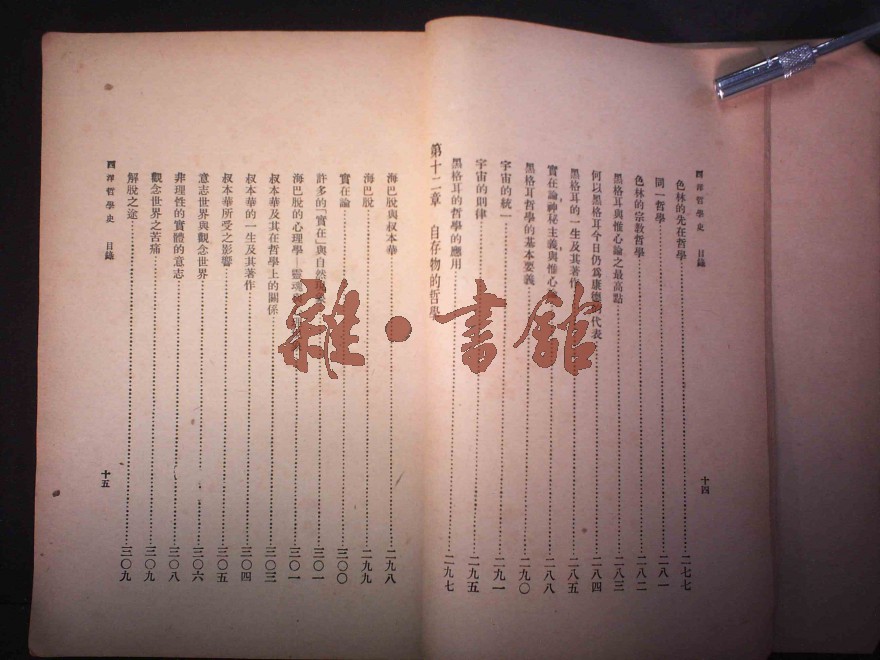 西洋哲學史 目錄
色林的先在哲學 二七七
同一哲學 二八一
色林的宗教哲學 二八二
黑格耳與惟心論之最高點 二八三
何以黑格耳今日仍爲康德 代表 二八四
黑格耳的一生及其著作 二八五
實在論,神秘主義,與惟心 二八八
黑格耳哲學的基本要義 二九〇
宇宙的統一 二九一
宇宙的則律 二九五
黑格耳的哲學的應用 二九七
十四
第十二章 自存物的哲學
海巴脫與叔本華 二九八
海巴脫 二九九
實在論 三〇〇
許多的「實在」與自然 三〇一
海巴脫的心理學—靈魂 三〇一
叔本華及其在哲學上的關係 三〇三
叔本華的一生及其著作 三〇四
叔本華所受之影響 三〇五
意志世界與觀念世界 三〇六
非理性的實體的意志 三〇八
觀念世界之苦痛 三〇九
解脫之途 三〇九
西洋哲學史 目錄
十五
雜·書館